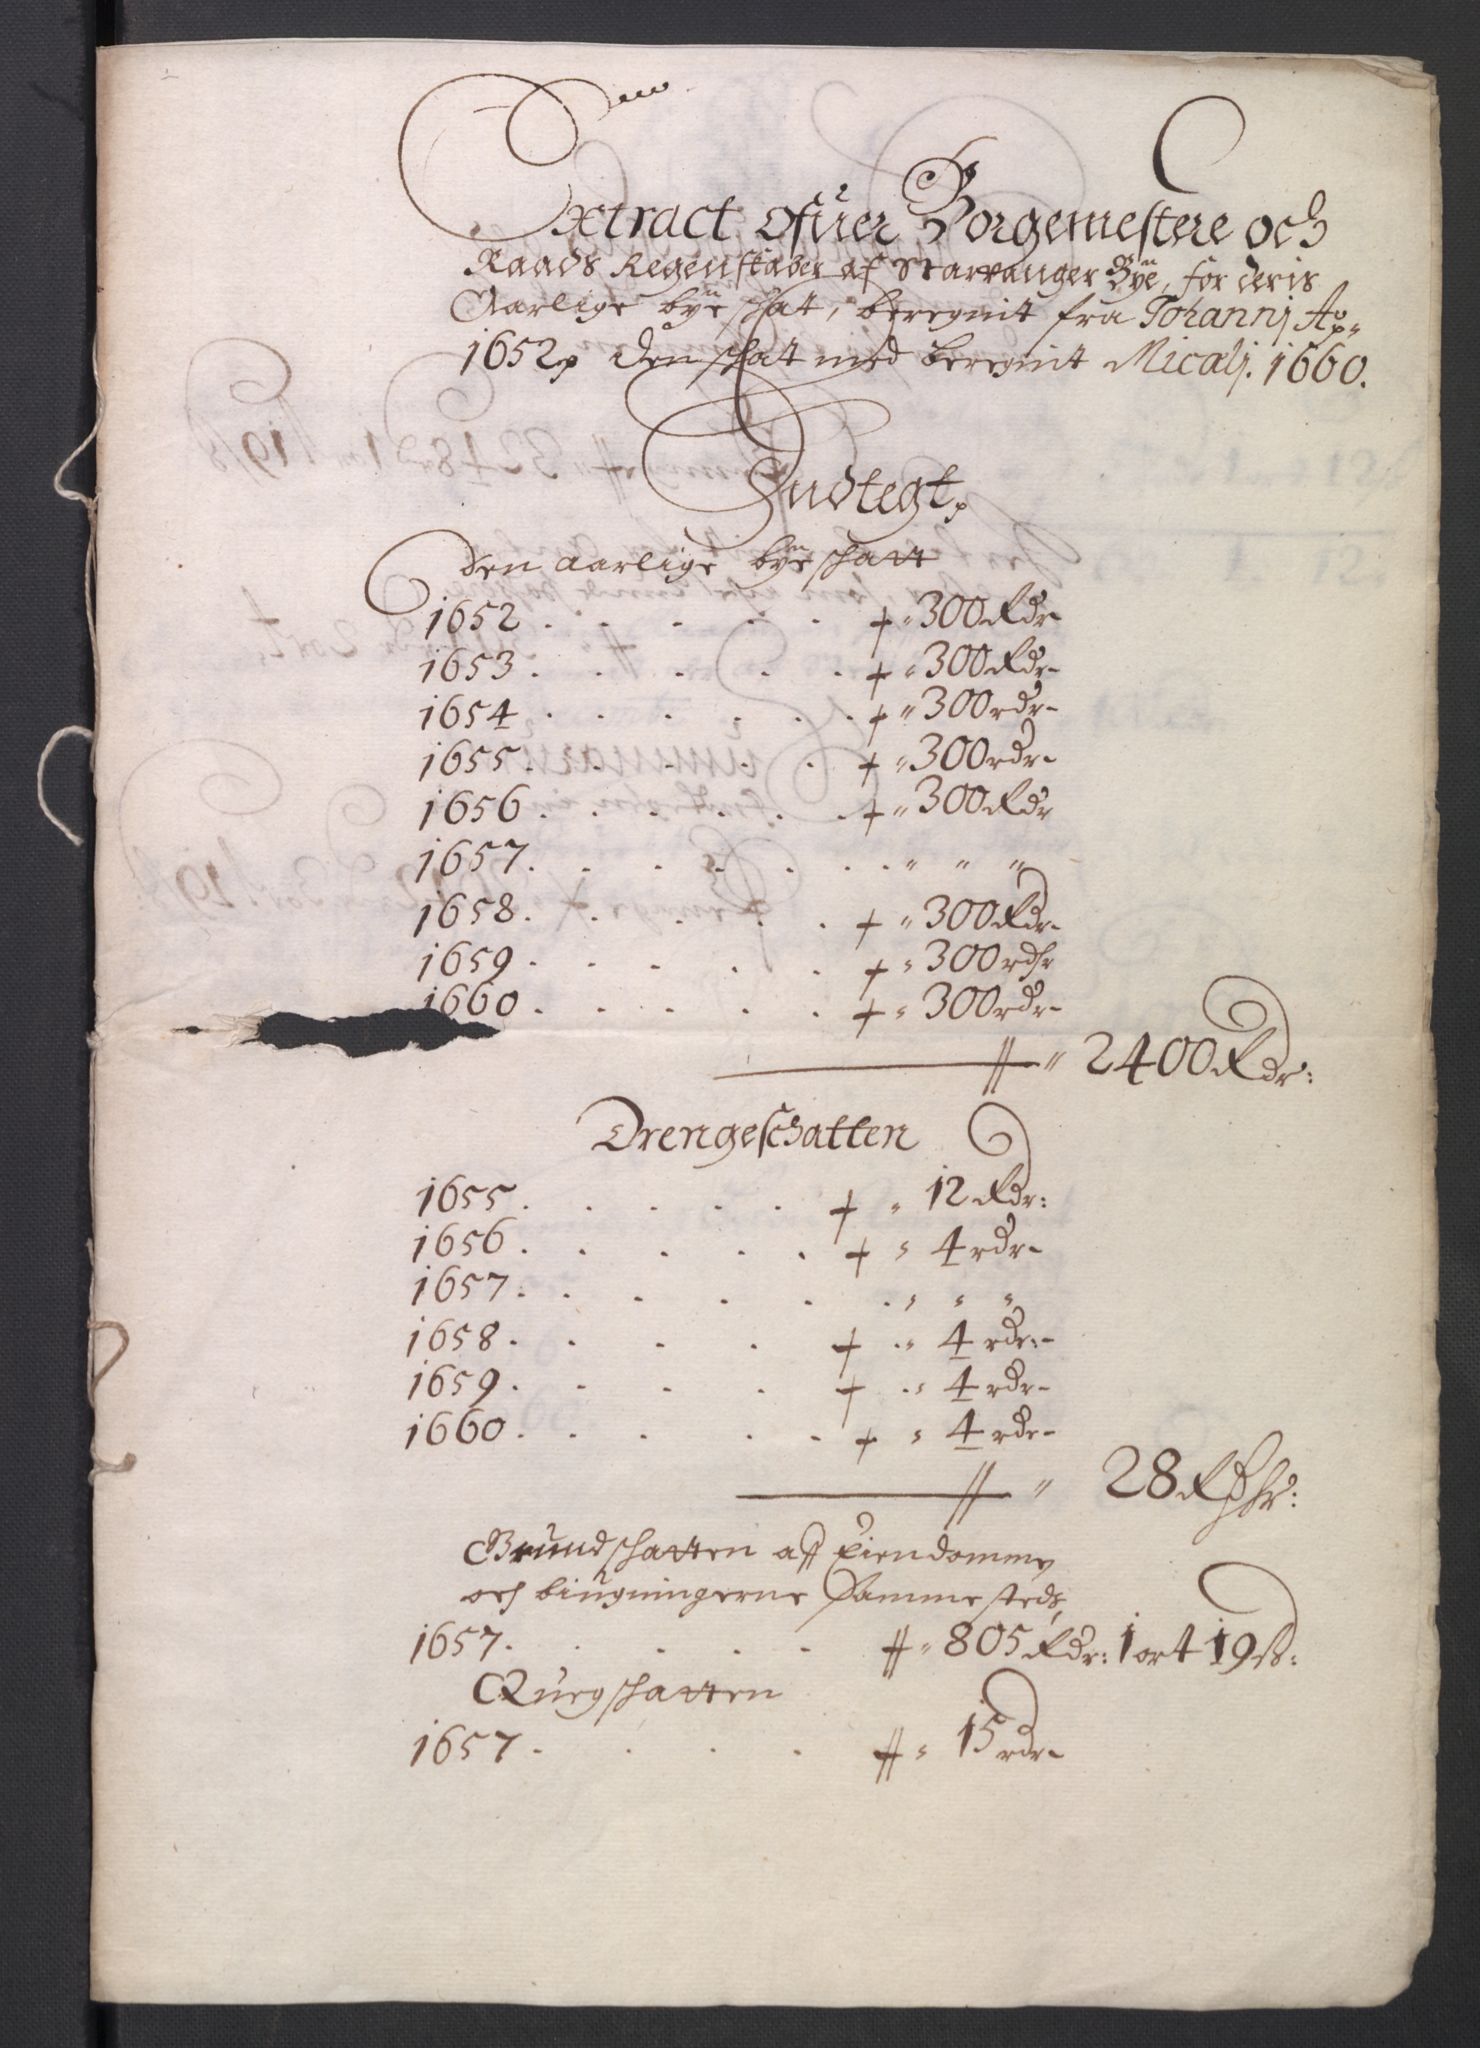 Extract ofuer Borgemestere och
Raads Regenskaber af Starvanger Bÿe, for deris
Aarlige bÿe schat, beregnit fra Johannj Ao
1652 den schat med beregnit Micalj. 1660.
Indtegt
Den aarlige bÿe schatt
1652 . . . . . . 300 Rdr
1653 . . . . . . 300 Rdr
1654 . . . . . . 300 rdr
1655 . . . . . . 300 rdr
1656 . . . . . . 300 Rdr
1657 . . . . . . " " "
1658 . . . . . . 300 Rdr
1659 . . . . . . 300 rdr
1660 . . . . . . 300 rdr
2400 Rdr:
Drengeschatten
1655 . . . . . . 12 Rdr:
1656 . . . . . . 4 rdr
1657 . . . . . . " " "
1658 . . . . . . 4 rdr:
1659 . . . . . . 4 rdr
1660 . . . . . . 4 rdr
28 Rdr:
Grundschatten aff Eiendomme
och biugningerne Sammesteds,
1657 . . . . . 805 Rdr: 1 ort 19 ß:
Quegschatten
1657 . . . . 15 rdr